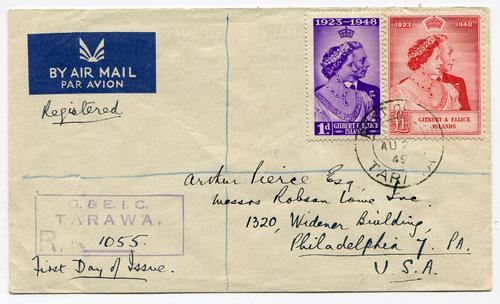 BY AIR MAIL
PAR AVION
Registered
1923-1948
1d
GILBERT & ELLICE
ISLANDS
1923 1948
£1
GILBERT & ELLICE
ISLANDS
AU
49
TAR
Arthur Pierce Esq
Messrs Robson Lowe Inc.
1320, Widener Building,
Philadelphia 7. PA.
U.S.A.
G. & E. I. C.
TARAWA.
R. No 1055.
First Day of Issue.